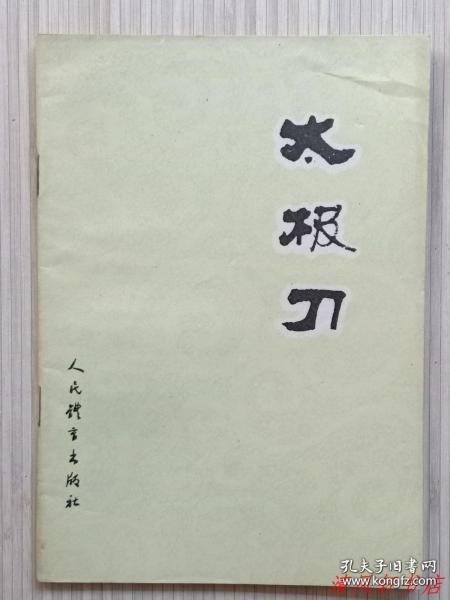 太极刀
人民体育出版社
孔夫子旧书网
www.kongfz.com